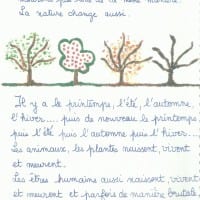 de la même manière.
La nature change aussi.
Il y a le printemps, l'été, l'automne,
l'hiver.... puis de nouveau le printemps
puis l'été puis l'automne puis l'hiver...
Les animaux, les plantes naissent, vivent
et meurent.
Les êtres humains aussi naissent, vivent
et meurent et parfois de manière brutale,